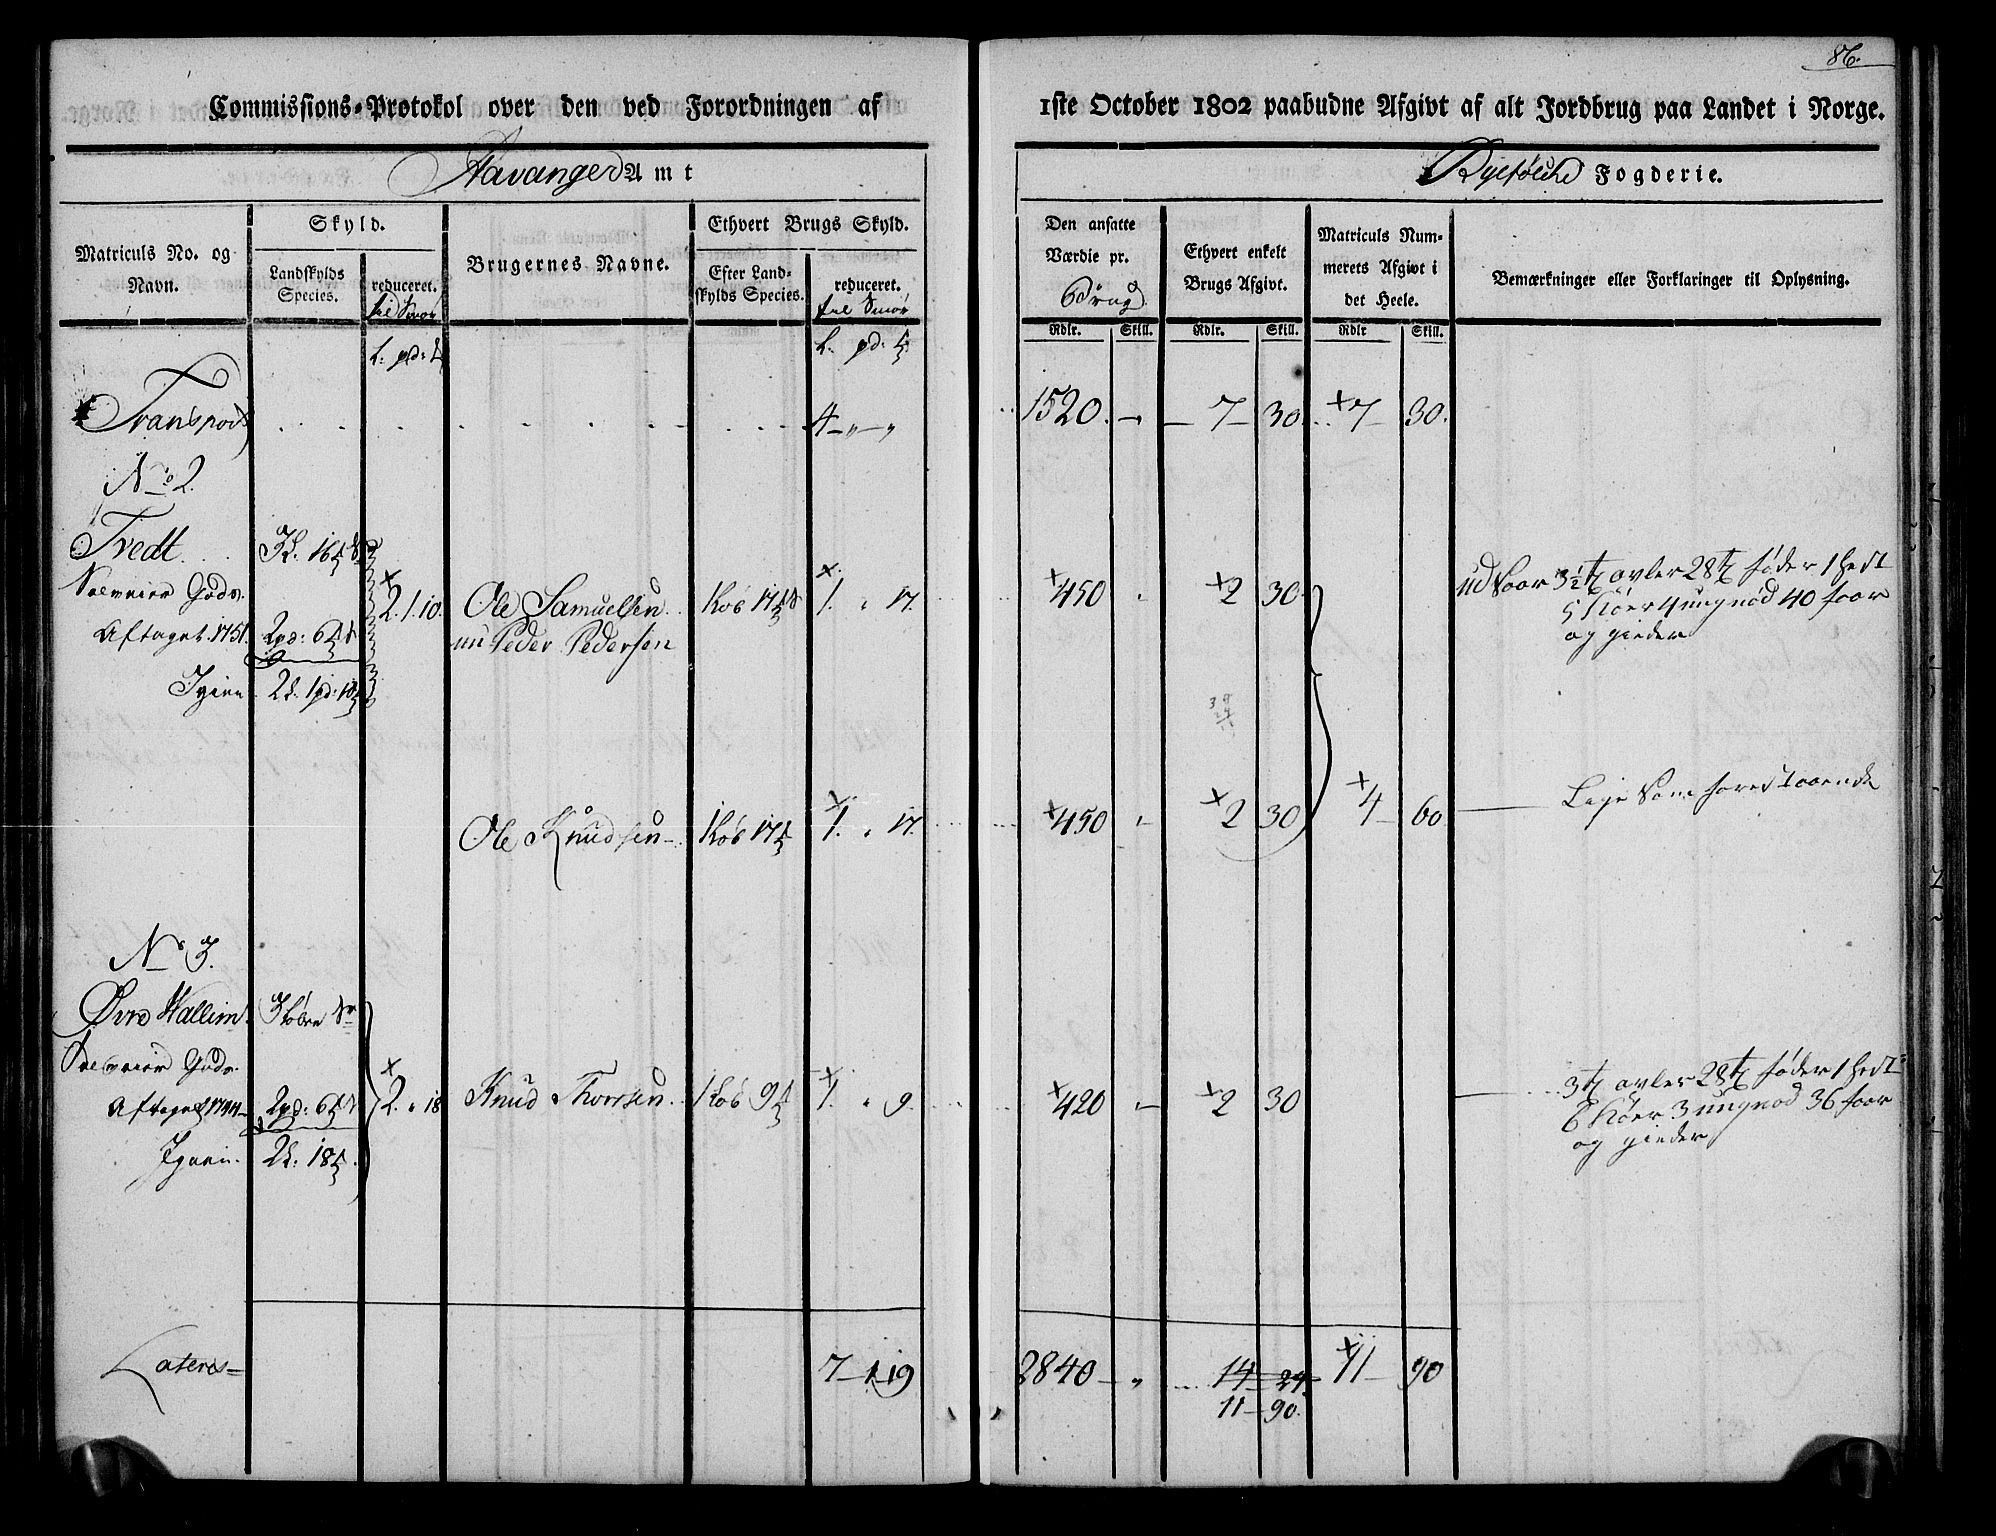 86.
Commissions-Protokol over den ved Forordningen af 1ste October 1802 paabudne Afgivt af alt Jordbrug paa Landet i Norge.
Stavanger Amt
Ryefölche Fogderie.
Matriculs No. og Navn.
Skyld.
Landskylds Species.
reduceret.
til Smør
Brugernes Navne.
Ethvert Brugs Skyld.
Efter Landskylds Species.
reduceret.
til Smør
Den ansatte Værdie pr.
Brug
Ethvert enkelt Brugs Afgivt.
Matriculs Nummerets Afgivt i det Heele.
Bemærkninger eller Forklaringer til Oplysning.
Rdlr. Skill. Rdlr. Skill. Rdlr Skill.
L: pd:
L. pd:
Transport 4 - „ - „ 1520. - 7 - 30. 7 - 30.
No 2
Tvedt
Aftaget 1751. 2pd: 6
Igien 2L. 1pd: 10
2. 1. 10. Ole Samuelsen 1 Kob 17 1. „ 17. 450 2 30
nu Peder Pedersen
ud Saar 3½ avler 28 føder 1 hest
5 Kiøer 4 ungnød 40 faar
og gieder
Ole Knudsen 1 Kob 17 1. „ 17. 450 2 30 4 60
Lige Som forestaaende
No 3.
Øvre Wallem
Aftaget 1744 2pd: 6
Igien 2L: 18
2. „ 18 Knud Thorsen 1 Kob 9 1. „ 9. 420 2 30
3 avler 28 føder 1 hest
6 Kiøer 3 ungnød 36 faar
og gieder
Lateres 7 - 1 - 19 2840 - „ 14 - 24 11 - 90
11 - 90.